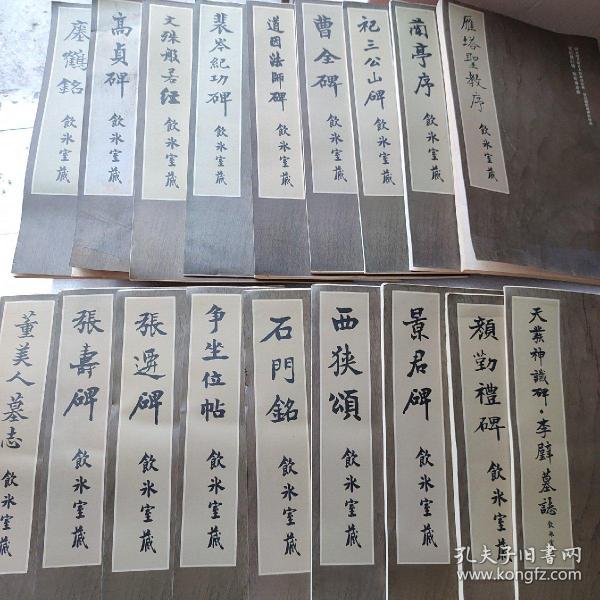 瘞鶴銘 飲冰室藏
高貞碑 飲冰室藏
文殊般若经 飲冰室藏
裴岑紀功碑 飲冰室藏
道因法師碑 飲冰室藏
曹全碑 飲冰室藏
祀三公山碑 飲冰室藏
蘭亭序 飲冰室藏
雁塔聖教序 飲冰室藏
董美人墓志 飲冰室藏
張壽碑 飲冰室藏
張遷碑 飲冰室藏
争坐位帖 飲冰室藏
石門銘 飲冰室藏
西狹頌 飲冰室藏
景君碑 飲冰室藏
顏勤禮碑 飲冰室藏
天發神讖碑·李壁墓誌 飲冰室
孔夫子旧书网
www.kongfz.com